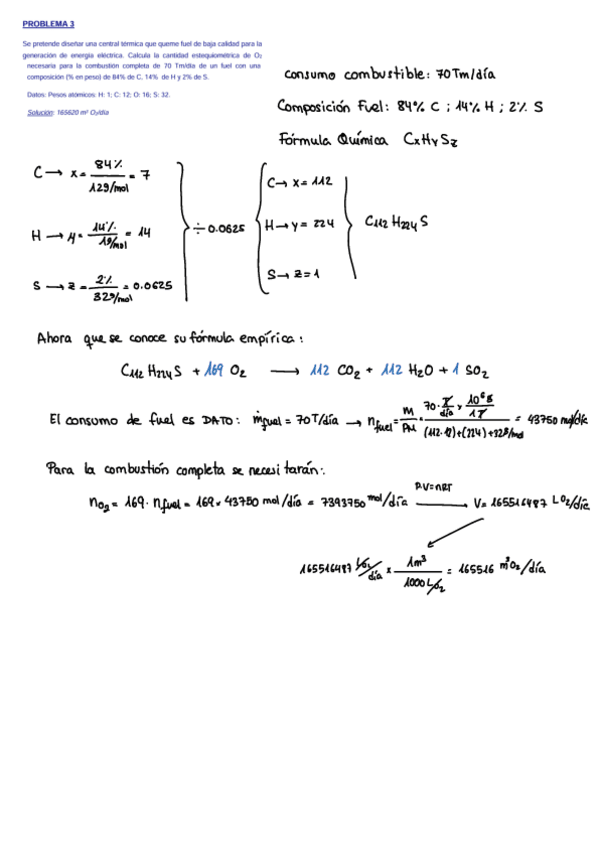 PROBLEMA 3
Se pretende diseñar una central térmica que queme fuel de baja calidad para la
generación de energía eléctrica. Calcula la cantidad estequiométrica de O₂
necesaria para la combustión completa de 70 Tm/día de un fuel con una
composición (% en peso) de 84% de C, 14% de H y 2% de S.
Datos: Pesos atómicos: H: 1; C: 12; O: 16; S: 32.
Solución: 165620 m³ O₂/día
Consumo combustible: 70 Tm/día
Composición Fuel: 84% C ; 14% H ; 2% S
Fórmula Química CxHySz
C → x = 84% / 12g/mol = 7
H → y = 14% / 1g/mol = 14
S → z = 2% / 32g/mol = 0.0625
÷ 0.0625
C → x = 112
H → y = 224
S → z = 1
C₁₁₂ H₂₂₄ S
Ahora que se conoce su fórmula empírica:
C₁₁₂ H₂₂₄ S + 169 O₂ → 112 CO₂ + 112 H₂O + 1 SO₂
El consumo de fuel es DATO: ṁfuel = 70T/día → nfuel = M / PM = 70 · T/día × 10⁶ g / 1T / (112·12)+(224)+32 g/mol = 43750 mol/día
Para la combustión completa se necesitarán:
nO₂ = 169 · nfuel = 169 × 43750 mol/día = 7393750 mol/día
P·V=nRT
→ V = 165516487 L O₂/día
165516487 L O₂/día × 1m³ / 1000 L O₂ = 165516 m³ O₂/día